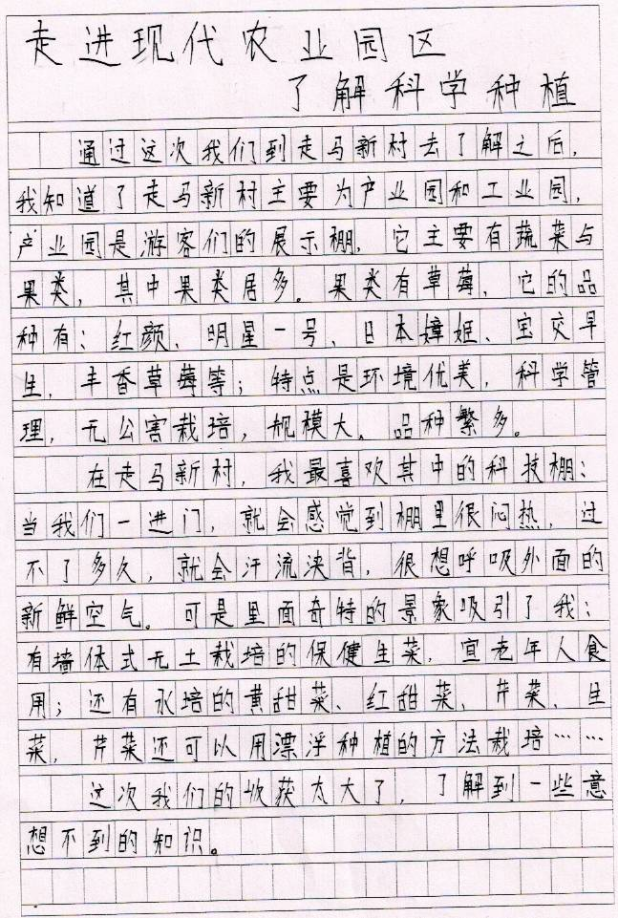 走进现代农业园区
了解科学种植
通过这次我们到走马新村去了解之后，
我知道了走马新村主要为产业园和工业园，
产业园是游客们的展示棚，它主要有蔬菜与
果类，其中果类居多。果类有草莓，它的品
种有：红颜、明星一号、日本嫜姬、宝交早
生，丰香草莓等；特点是环境优美，科学管
理，无公害栽培，规模大，品种繁多。
在走马新村，我最喜欢其中的科技棚：
当我们一进门，就会感觉到棚里很闷热，过
不了多久，就会汗流浃背，很想呼吸外面的
新鲜空气。可是里面奇特的景象吸引了我：
有墙体式无土栽培的保健生菜，宜老年人食
用；还有水培的黄甜菜、红甜菜、芹菜、生
菜，芹菜还可以用漂浮种植的方法栽培……
这次我们的收获太大了，了解到一些意
想不到的知识。